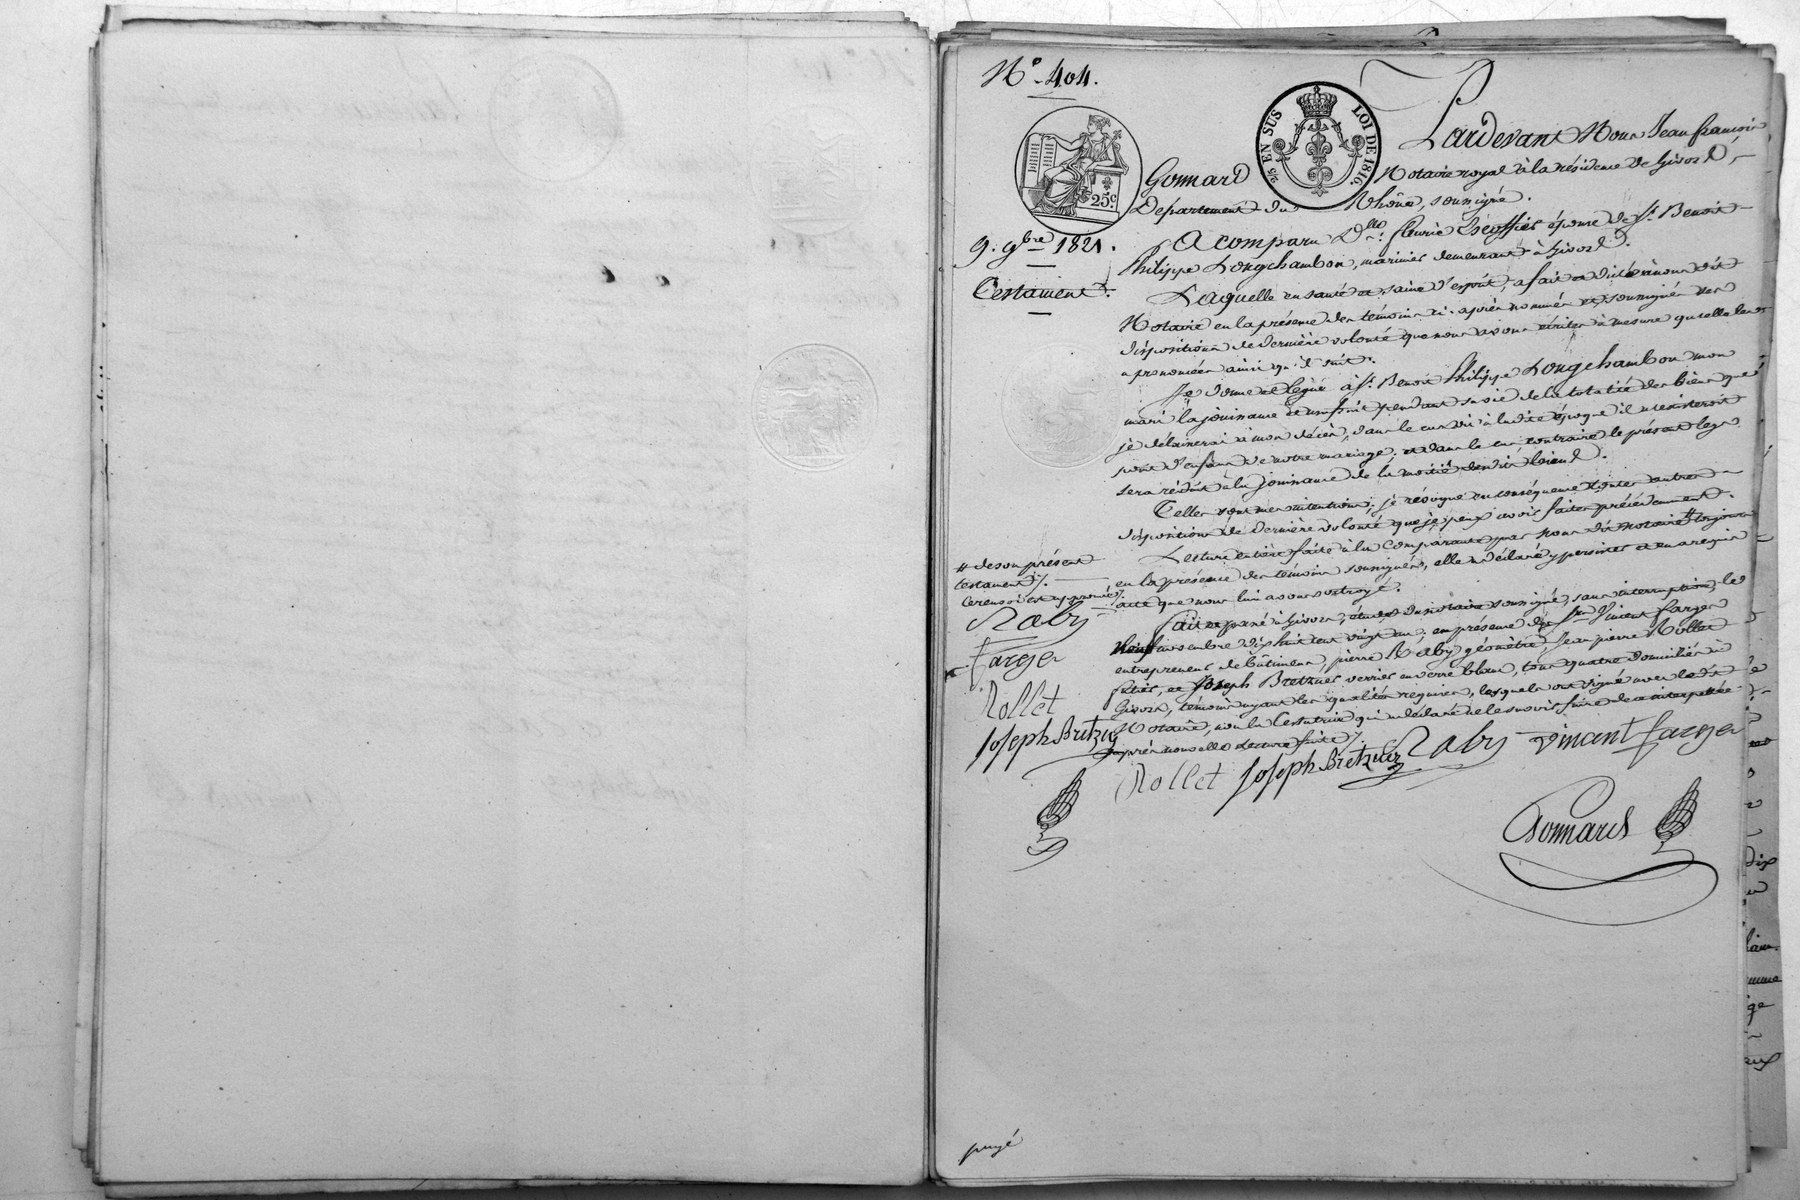 N° 404.
25 EN SUS LOI DE 1816.
25 c
Pardevant Nous Jean françois
Gonnard Notaire royal à la résidence de Givors,
Département du Rhône, soussigné.
9. 9bre 1821.
Testament.
A comparu Dlle fleurie épouse de Sr. Benoit
Philippe Longchambon, marinier demeurant à Givors.
Laquelle en santé et saine d'esprit, a fait et dicté à nous dit
Notaire en la présence des témoins ci-après nommés et soussignés ses
dispositions de dernière volonté que nous avons écrites à mesure qu'elle les
a prononcées ainsi qu'il suit.
Je donne et lègue à Sr. Benoit Philippe Longchambon mon
mari la jouissance et usufruit pendant sa vie de la totalité des biens que
je délaisserai à mon décès, dans le cas où à ladite époque il n'existeroit
point d'enfans de notre mariage, et dans le cas contraire le présent legs
sera réduit à la jouissance de la moitié desdits biens.
Telles sont mes intentions; je révoque en conséquence toutes autres
dispositions de dernière volonté que je peux avoir faites précédemment.
Lecture entière faite à la Comparante par nous dit Notaire # toujours
en la présence des témoins soussignés, elle a déclaré y persister et en a requis
acte que nous lui avons octroyé.
# de son présent
testament.
Ce renvoi est approuvé
Raby
farge
Rollet
Joseph Bretzner
fait et passé à Givors, étude du notaire soussigné, sans interruption, le
neuf novembre dix huit cent vingt un; en présence des Srs Vincent farge
entrepreneur de bâtimens, pierre Raby géomètre, Jean pierre Rollet
, et Joseph Bretzner verrier en verre blanc, tous quatre domiciliés à
Givors, témoins ayant les qualités requises, lesquels ont signé avec ledit
Notaire, non la testatrice qui a déclaré ne le savoir faire de ce interpellée
après nouvelle lecture faite.
Raby vinant farge
Rollet Joseph Bretzner
Gonnard
payé